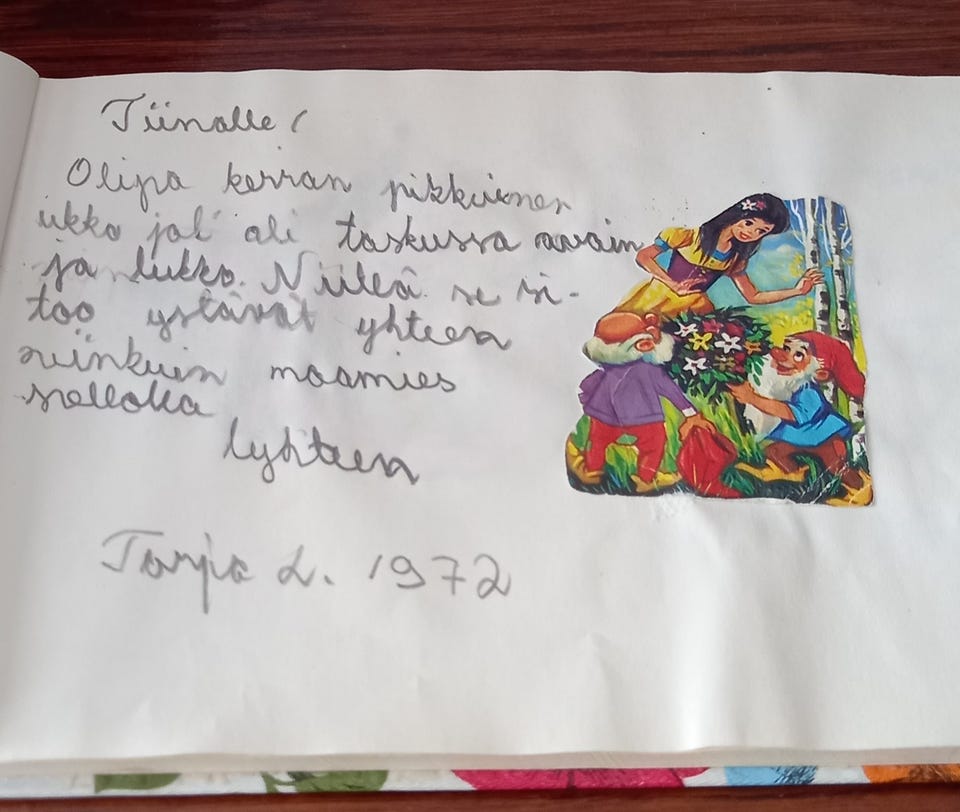 Tiinalle!
Olipa kerran pikkuinen
ukko jol' oli taskussa avain
ja lukko. Niillä se si-
too ystävät yhteen
niinkuin maamies
pellolla
lyhteen
Tarja L. 1972